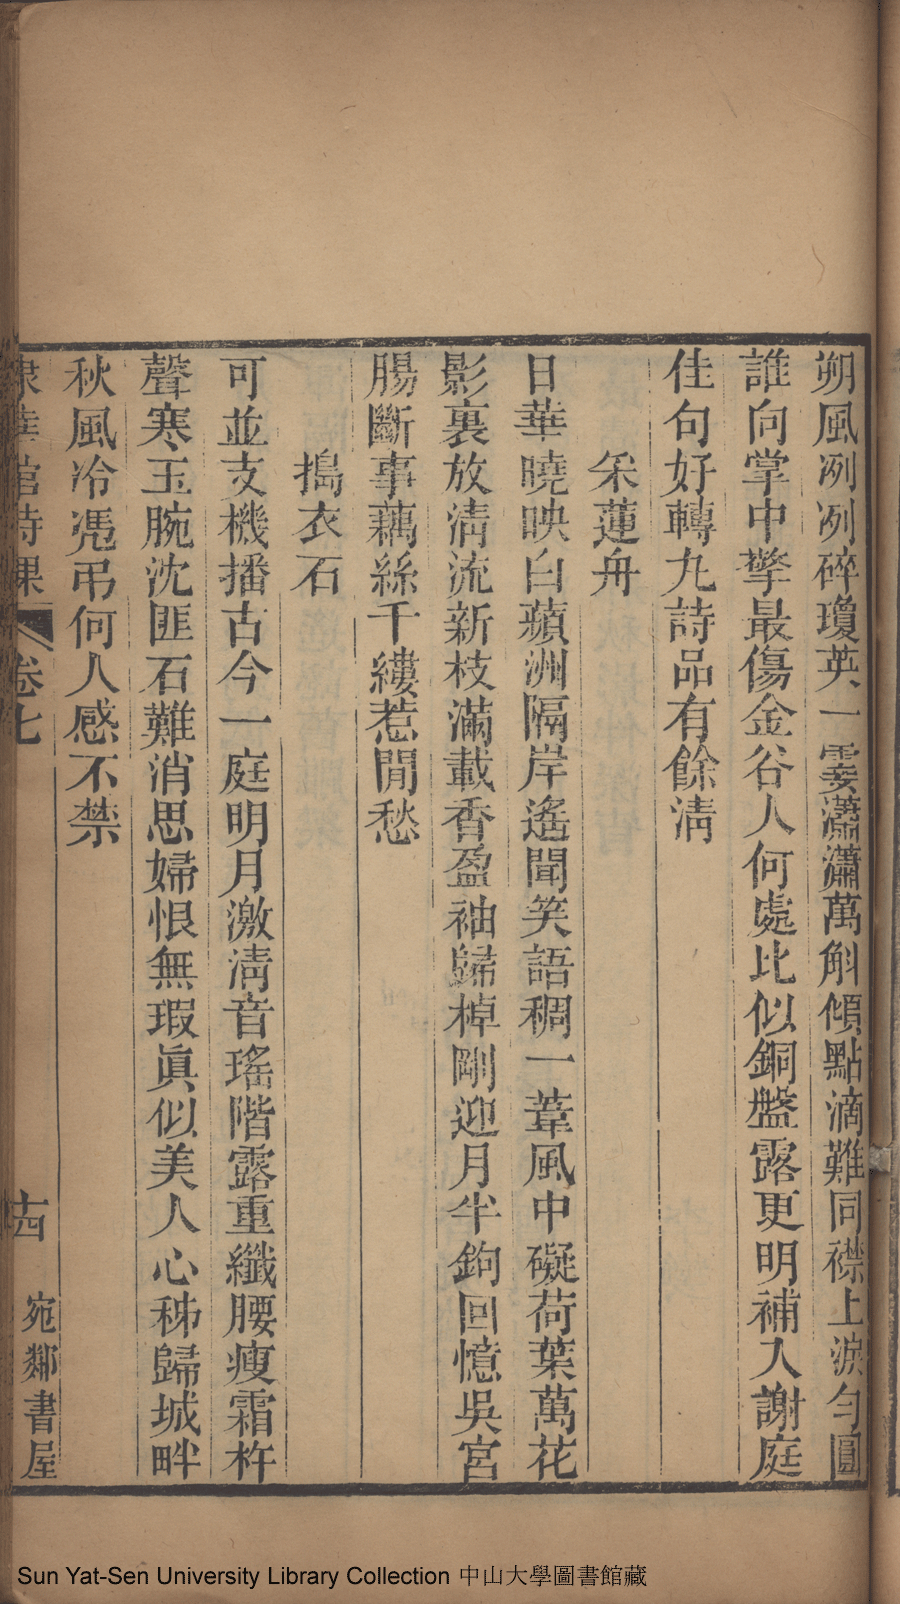 朔風冽冽碎瓊英一霎瀟瀟萬斛傾點滴難同襟上淚勻圓
誰向掌中擎最傷金谷人何處比似銅盤露更明補入謝庭
佳句好轉九詩品有餘淸
采蓮舟
日華曉映白蘋洲隔岸遙聞笑語稠一葦風中礙荷葉萬花
影裏放淸流新枝滿載香盈袖歸棹剛迎月半鉤回憶吳宮
腸斷事藕絲千縷惹閒愁
搗衣石
可並支機播古今一庭明月激淸音瑤階露重纖腰瘦霜杵
聲寒玉腕沈匪石難消思婦恨無瑕眞似美人心秭歸城畔
秋風冷憑弔何人感不禁
館詩課 卷七 十四 宛鄰書屋
Sun Yat-Sen University Library Collection 中山大學圖書館藏